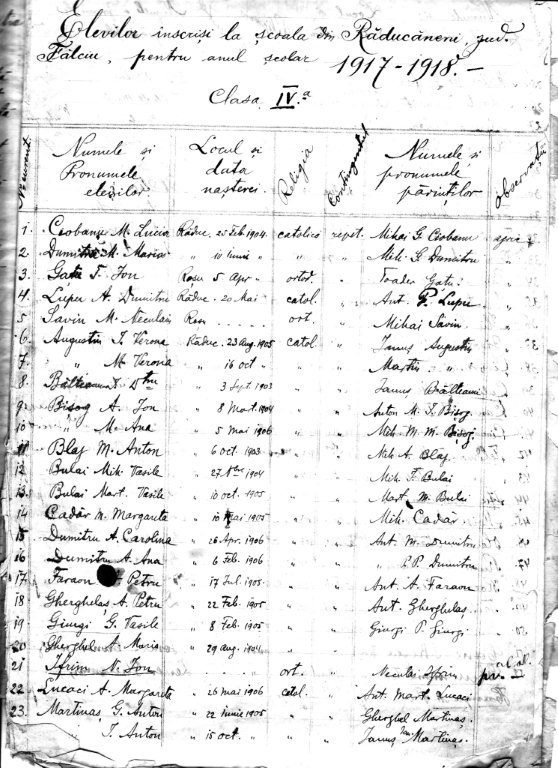 Elevilor inscriși la școala din Răducăneni, jud.
Fălciu, pentru anul școlar 1917-1918.-
Clasa IV.a
Nr. curent Numele și Pronumele elevilor Locul și data nașterei Religia Contingentul Numele și pronumele părinților Observații
1. Ciobanu M. Lucia Răduc. 25 feb 1904. catolică repet. Mihai G. Ciobanu
2 Dumitru M. Maria " 10 iunie " " " Mih. S. Dumitru
3. Gatu T. Ion Roșu 5 Apr. " ortod. " Toader Gatu
4 Lupu A. Dumitru Răduc. 20 Mai " catol. " Ant. P. Lupu
5 Savin M. Neculai ort " Mihai Savin
6. Augustin I. Verona Răduc. 23 aug. 1905 catol " Ianuș Augustin
7. " M Verona " 16 oct " " " Martin "
8. " 3 Sept 1903 " " Ianuș
9. Bișog A. Ion " 8 Mart. 1904 " " Anton M. I. Bișog
10 " M. Ana " 5 mai 1906 " " Mih. M. M. Bișog
11 Blaj M. Anton " 6 oct 1903 " " Mih A. Blaj
12 Bulai Mih. Vasile " 27 1904 " " Mih. F. Bulai
13. Bulai Mart. Vasile " 10 oct. 1905 " " Mart. M. Bulai
14 Cadăr M. Margareta " 10 Mai 1905 " " Mih. Cadăr
15 Dumitru A. Carolina " 26 Apr. 1906 " " Ant. M. Dumitru
16 Dumitru A. Ana " 6 Feb. 1906 " " " P. Dumitru
17. Faraon A. Petru " 17 Iul. 1905. " " Ant. A. Faraon
18 Gherghelaș A. Petru " 22 Feb. 1905 " " Ant. Gherghelaș
19. Giurgi G. Vasile " 8 Feb. 1905 " " Giurgi P. Giurgi
20 Gherghel A. Maria " 29 aug. 1904 " "
21 Ifrim N. Ion ort. " Neculai Ifrim
22 Lucaci A. Margareta " 26 mai 1906 catol. " Ant. Mart. Lucaci
23. Martinaș G. Anton " 22 iunie 1905 " " Gherghel Martinaș.
" I. Anton " 15 oct. " " " Ianuș Martinaș.